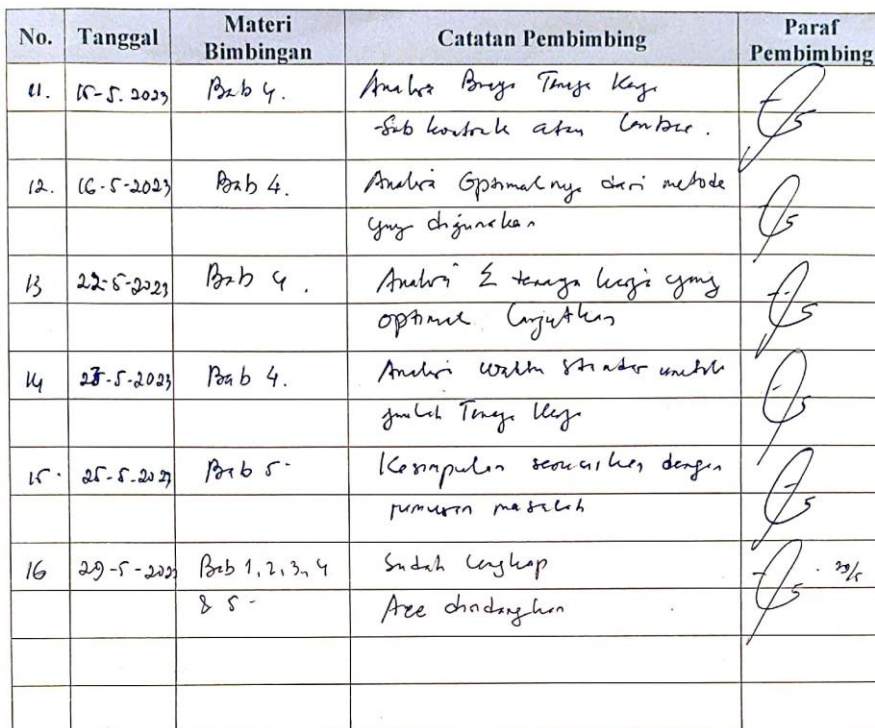 No. Tanggal Materi Bimbingan Catatan Pembimbing Paraf Pembimbing
11. 15-5-2023 Bab 4. Analisa Biaya Tenaga Kerja
Sub kontrak atau
12. 16-5-2023 Bab 4. Analisa Optimalnya dari metode
yang digunakan
13 22-5-2023 Bab 4. Analisi Σ tenaga kerja yang
optimal lanjutkan
14 23-5-2023 Bab 4. Analisi waktu standar untuk
jumlah Tenaga Kerja
15. 25-5-2023 Bab 5. Kesimpulan sesuaikan dengan
rumusan masalah
16 29-5-2023 Bab 1, 2, 3, 4 Sudah lengkap 29/5
& 5. Acc disidangkan